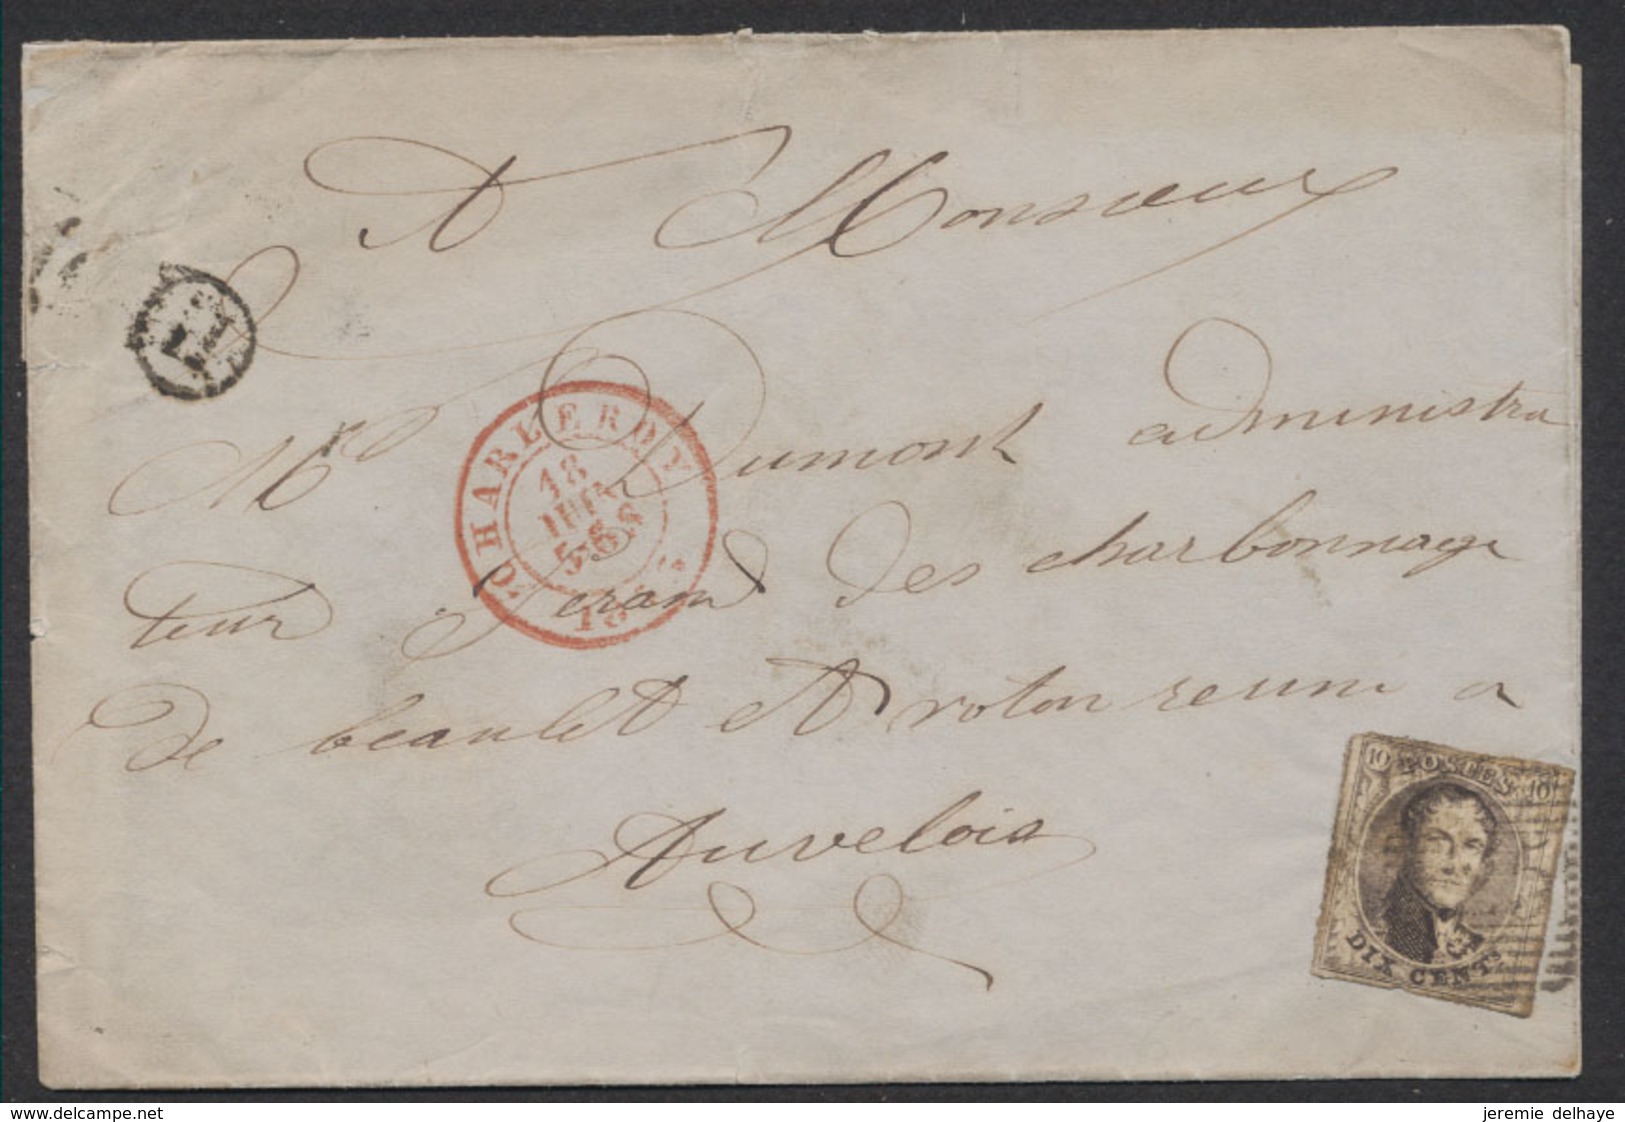 A Monsieur
Mr Dumont administra
teur gerant des charbonnage
de beaulet et roton reuni a
Auvelois
CHARLEROY
18
JUIN
5-6S
18
POSTES
10
10
DIX CENTS
www.delcampe.net
jeremie delhaye